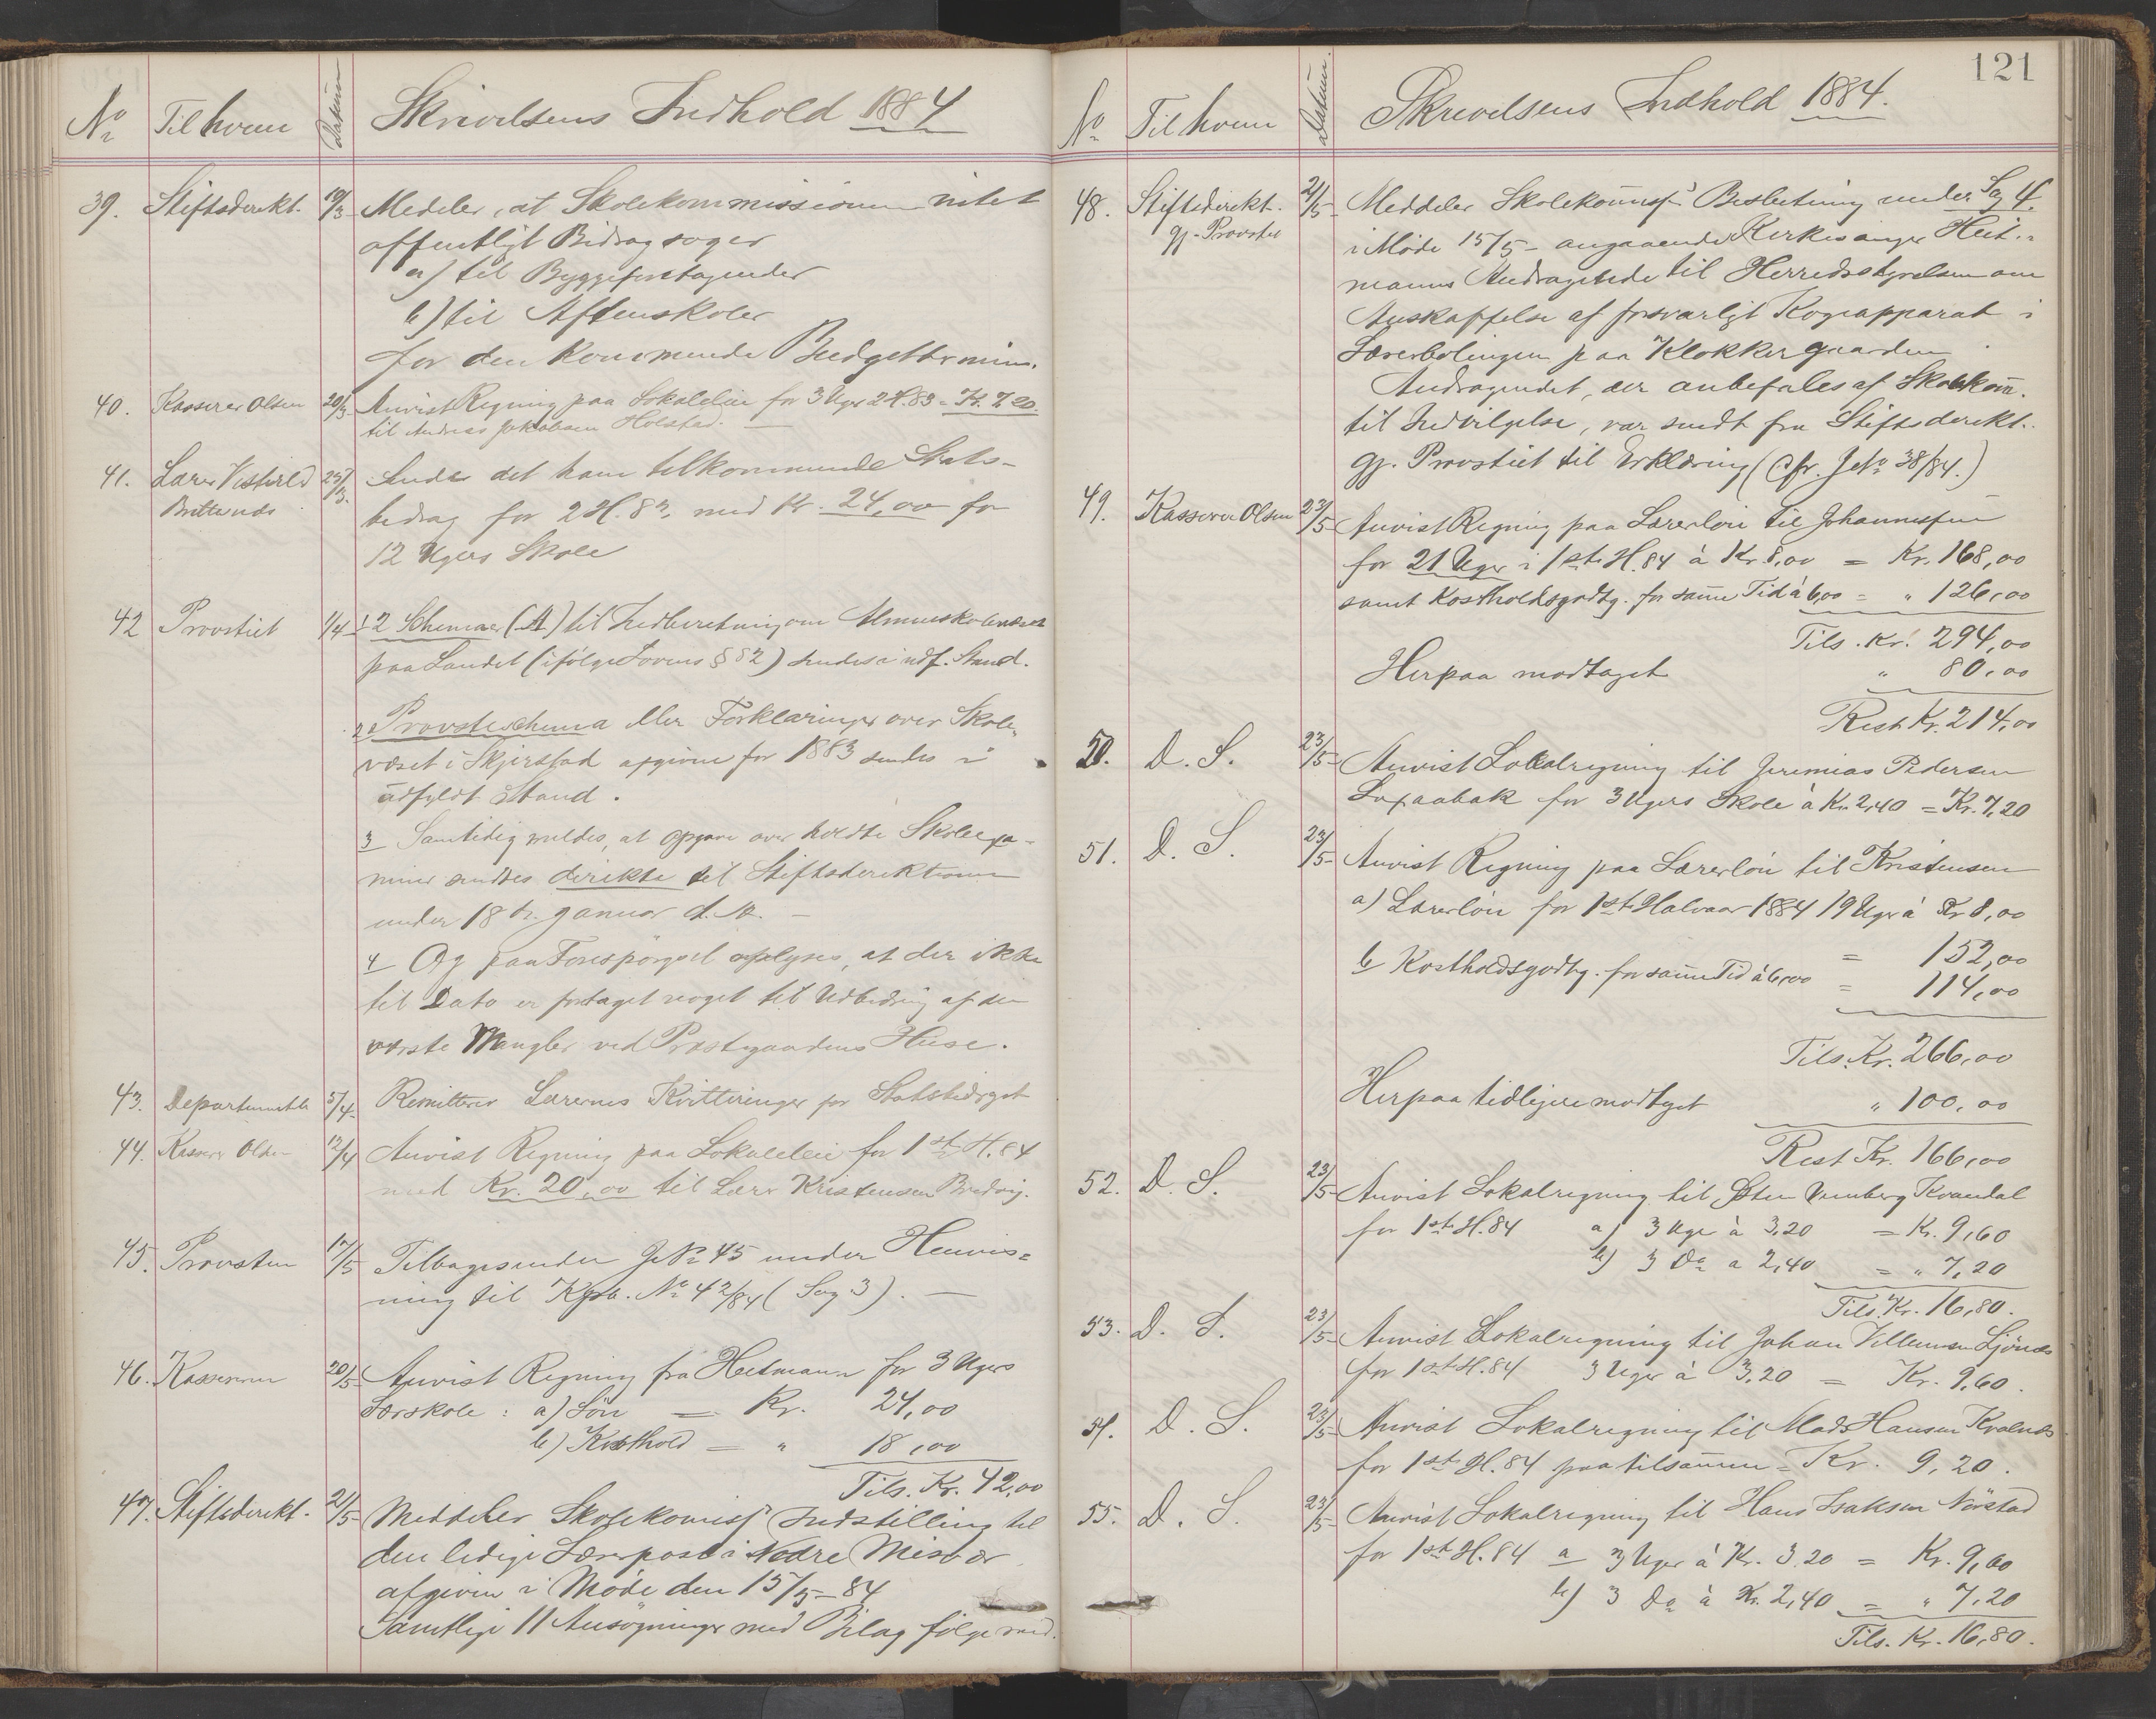 No Til hvem Datum Skrivelsens Indhold 1884
39. Stiftsdirekt. 19/3 Medeler, at Skolekommissionen intet
offentligt Bidrag søger
a) til Byggeforetagender
b) til Aftenskoler
for den kommende Budgettermin.
40. Kasserer Olsen 20/3 Anvist Regning paa Lokalleie for 3 Uger 2 H. 83 = Kr. 7,20
til Andreas Jakobsen Holstad.
41. Lærer 23/3. Sender det ham tilkommende Stats-
bidrag for 2 H. 83, med Kr. 24,00 for
12 Ugers Skole
42 Provstiet 1/4 1 2 Schemaer (A) til Indberetning om Almueskolevæsenet
paa Landet (ifølge Lovens § 82) sendes i udf. Stand.
2 Provsteschema eller Forklaringer over Skole-
væset i Skjerstad afgivne for 1883 sendes i
udfyldt Stand.
3 Samtidig meldes, at Opgave over holdte Skoleexa-
miner sendtes direkte til Stiftsdirektionen
under 18de Januar d. A. -
4 Og paa Forespørgsel oplyses, at der ikke
til Dato er foretaget noget til Udbedring af de
værste Mangler ved Præstegaardens Huse.
43. Departementet 5/4 Remitterer Lærernes Kvitteringer for Statsbidraget
44. Kasserer Olsen 12/4 Anvist Regning paa Lokalleie for 1ste H. 84
med Kr. 20,00 til Lærer Kristensen Bredvig.
45. Provsten 17/5 Tilbagesender J No 45 under Henvis=
ning til Kpb. No 42/84 (Sag 3). -
46. Kassereren 20/5 Anvist Regning fra Heitmann for 3 Ugers
Lærskole: a) Løn = Kr. 24,00
b) Kosthold = " 18,00
Tils. Kr. 42,00
47. Stiftsdirekt. 21/5 Meddeler Skolekomiss. Indstilling til
den ledige Lærerpost i Nedre Misvær
afgiven i Møde den 15/5-84
Samtlige 11 Ansøgninger med Bilag følge med.
121
No Til hvem Datum Skrivelsens Indhold 1884.
48. Stiftsdirekt. 21/5 Meddeler Skolekomms. Beslutning under Sag 4.
gj. Provstiet
i Møde 15/5 - angaaende Kirkesanger Heit-
manns Andragende til Herredsstyrelsen om
Anskaffelse af forsvarligt Kogeapparat i
Lærerboligen paa Klokkergaarden.
Andragendet, der anbefales af Skolekom.
til Indvilgelse, var sendt fra Stiftsdirekt.
gj. Provstiet til Erklæring (Cfr. J No 38/84.)
49. Kasserer Olsen 23/5 Anvist Regning paa Lærerløn til Johannessen
for 21 Uger i 1ste H. 84 à Kr 8,00 = Kr. 168,00
samt Kostholdsgodtg. for samme Tid à 6,00 = " 126,00
Tils. Kr. 294,00
Herpaa modtaget " 80,00
Rest Kr. 214,00
50. D. S. 23/5 Anvist Lokalregning til Jeremias Pedersen
Laxaabak for 3 Ugers Skole à Kr 2,40 = Kr. 7,20
51. D. S. 23/5 Anvist Regning paa Lærerløn til Kristensen
a) Lærerløn for 1ste Halvaar 1884 19 Uger à Kr 8,00
= 152,00
b Kostholdsgodtg. for samme Tid à 6,00 = 114,00
Tils. Kr. 266,00
Herpaa tidligere modtaget " 100,00
Rest Kr. 166,00
52. D. S. 23/5 Anvist Lokalregning til Kvandal
for 1ste H. 84 a) 3 Uger à 3,20 = Kr. 9,60
b) 3 Do a 2,40 = " 7,20
Tils. Kr. 16,80.
53. D. S. 23/5 Anvist Lokalregning til Johan Villumsen Ljønes
for 1ste H. 84 3 Uger à 3,20 = Kr. 9,60.
54. D. S. 23/5 Anvist Lokalregning til Mads Hansen Kvalnes
for 1ste H. 84 paa tilsammen = Kr. 9,20.
55. D. S. 23/5 Anvist Lokalregning til Hans Isaksen Nørstad
for 1ste H. 84 a 3 Uger à Kr. 3,20 = Kr. 9,60
b) 3 Do à Kr. 2,40 = " 7,20
Tils. Kr. 16,80.